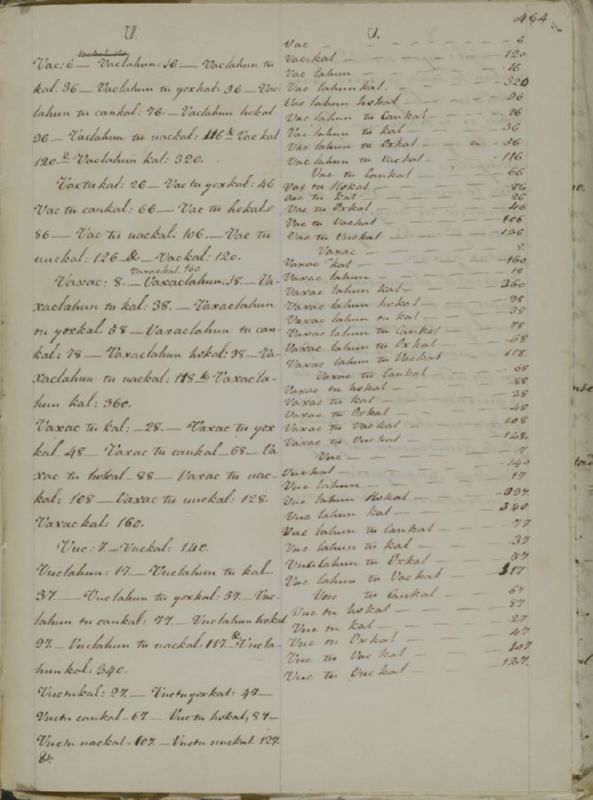 464
U.
Vackal 120
Vac: 6 — Vaclahun: 16 — Vaclahun tu
kal: 36 — Vaclahun tu yoxkal: 56 — Vac-
lahun tu cankal: 76. — Vaclahun hokal
96 — Vaclahun tu uackal: 116 & Vackal
120. — Vaclahun kal: 320.
Vactukal: 26 — Vac tu yoxkal: 46
Vac tu cankal: 66 — Vac tu hokal:
86 — Vac tu uackal: 106. — Vac tu
uuckal: 126 & — Vackal: 120.
Vaxackal. 160
Vaxac: 8. — Vaxaclahun: 18. — Va-
xaclahun tu kal: 38. — Vaxaclahun
tu yoxkal: 58 — Vaxaclahun tu can-
kal: 78 — Vaxaclahun hokal: 98 — Va-
xaclahun tu uackal: 118 & Vaxacla-
hun kal: 360.
Vaxac tu kal: — 28. — Vaxac tu yox
kal. 48 — Vaxac tu cankal — 68 — Va
xac tu hokal 88 — Vaxac tu uac-
kal: 108 — Vaxac tu uuckal: 128.
Vaxackal: 160.
Vuc: 7 — Vuckal: 140.
Vuclahun: 17 — Vuclahun tu kal
37. — Vuclahun tu yoxkal: 57. Vuc-
lahun tu cankal: 77 — Vuclahun hokal
97 — Vuclahun tu uackal: 117 & Vucla-
hun kal: 340.
Vuctukal: 27. — Vuctuyoxkal: 47 —
Vuctu cankal — 67. — Vuctu hokal, 87 —
Vuctu uackal. 107. — Vuctu uuckal. 127.
&.
U.
Vac — 6
Vackal — 120
Vac lahun — 16
Vac lahunkal. — 320
Vac lahun hokal — 96
Vac lahun tu Cankal — 76
Vac lahun tu kal — 36
Vac lahun tu Oxkal — 56
Vac lahun tu Vackal — 116
Vac tu Cankal — 66
Vac tu Hokal — 86
Vac tu kal — 26
Vac tu Oxkal — 46
Vac tu Vackal — 106
Vac tu Vuckal — 126
Vaxac — 8
Vaxac kal — 160
Vaxac lahun — 18
Vaxac lahun kal — 360
Vaxac lahun hokal — 98
Vaxac lahun tu kal — 38
Vaxac lahun tu Cankal — 78
Vaxac lahun tu Oxkal — 58
Vaxac lahun tu Vackal — 118
Vaxac tu Cankal — 68
Vaxac tu hokal — 88
Vaxac tu kal — 28
Vaxac tu Oxkal — 48
Vaxac tu Vackal — 108
Vaxac tu Vuckal — 128
Vuc — 7
Vuckal — 140
Vuc lahun — 17
Vuc lahun Hokal — 97
Vuc lahun kal — 340
Vuc lahun tu Cankal — 77
Vuc lahun tu kal — 37
Vuc lahun tu Oxkal — 57
Vuc lahun tu Vackal — 117
Vuc tu Cankal — 67
Vuc tu hokal — 87
Vuc tu kal — 27
Vuc tu Oxkal — 47
Vuc tu Vackal — 107
Vuc tu Vuckal — 127